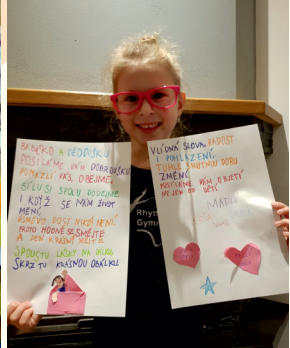 BABIČKO A DĚDOUŠKU
POSÍLÁME VÁM DOBROUŠKU
POMAZLÍ VÁS, OBEJME,
SÍLU SI SPOLU DODEJME.
I KDYŽ SE NÁM ŽIVOT
MĚNÍ,
ÚSMĚVŮ DOST NIKDY NENÍ.
PROTO HODNĚ SE SMĚJTE
A DEN KRÁSNÝ MĚJTE.
SPOUSTU LÁSKY NA DÁLKU
SKRZ TU KRÁSNOU OBÁLKU
VLÍDNÁ SLOVA, RADOST
I POHLAZENÍ,
TUHLE SMUTNOU DOBU
ZMĚNÍ.
POSÍLÁME VÁM OBJETÍ
NEJEN OD DĚTÍ
Rhyth
Gymn